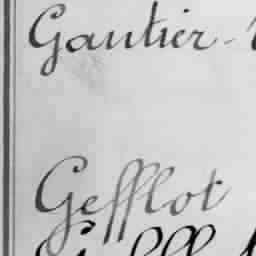 Gautier -
Gefflot